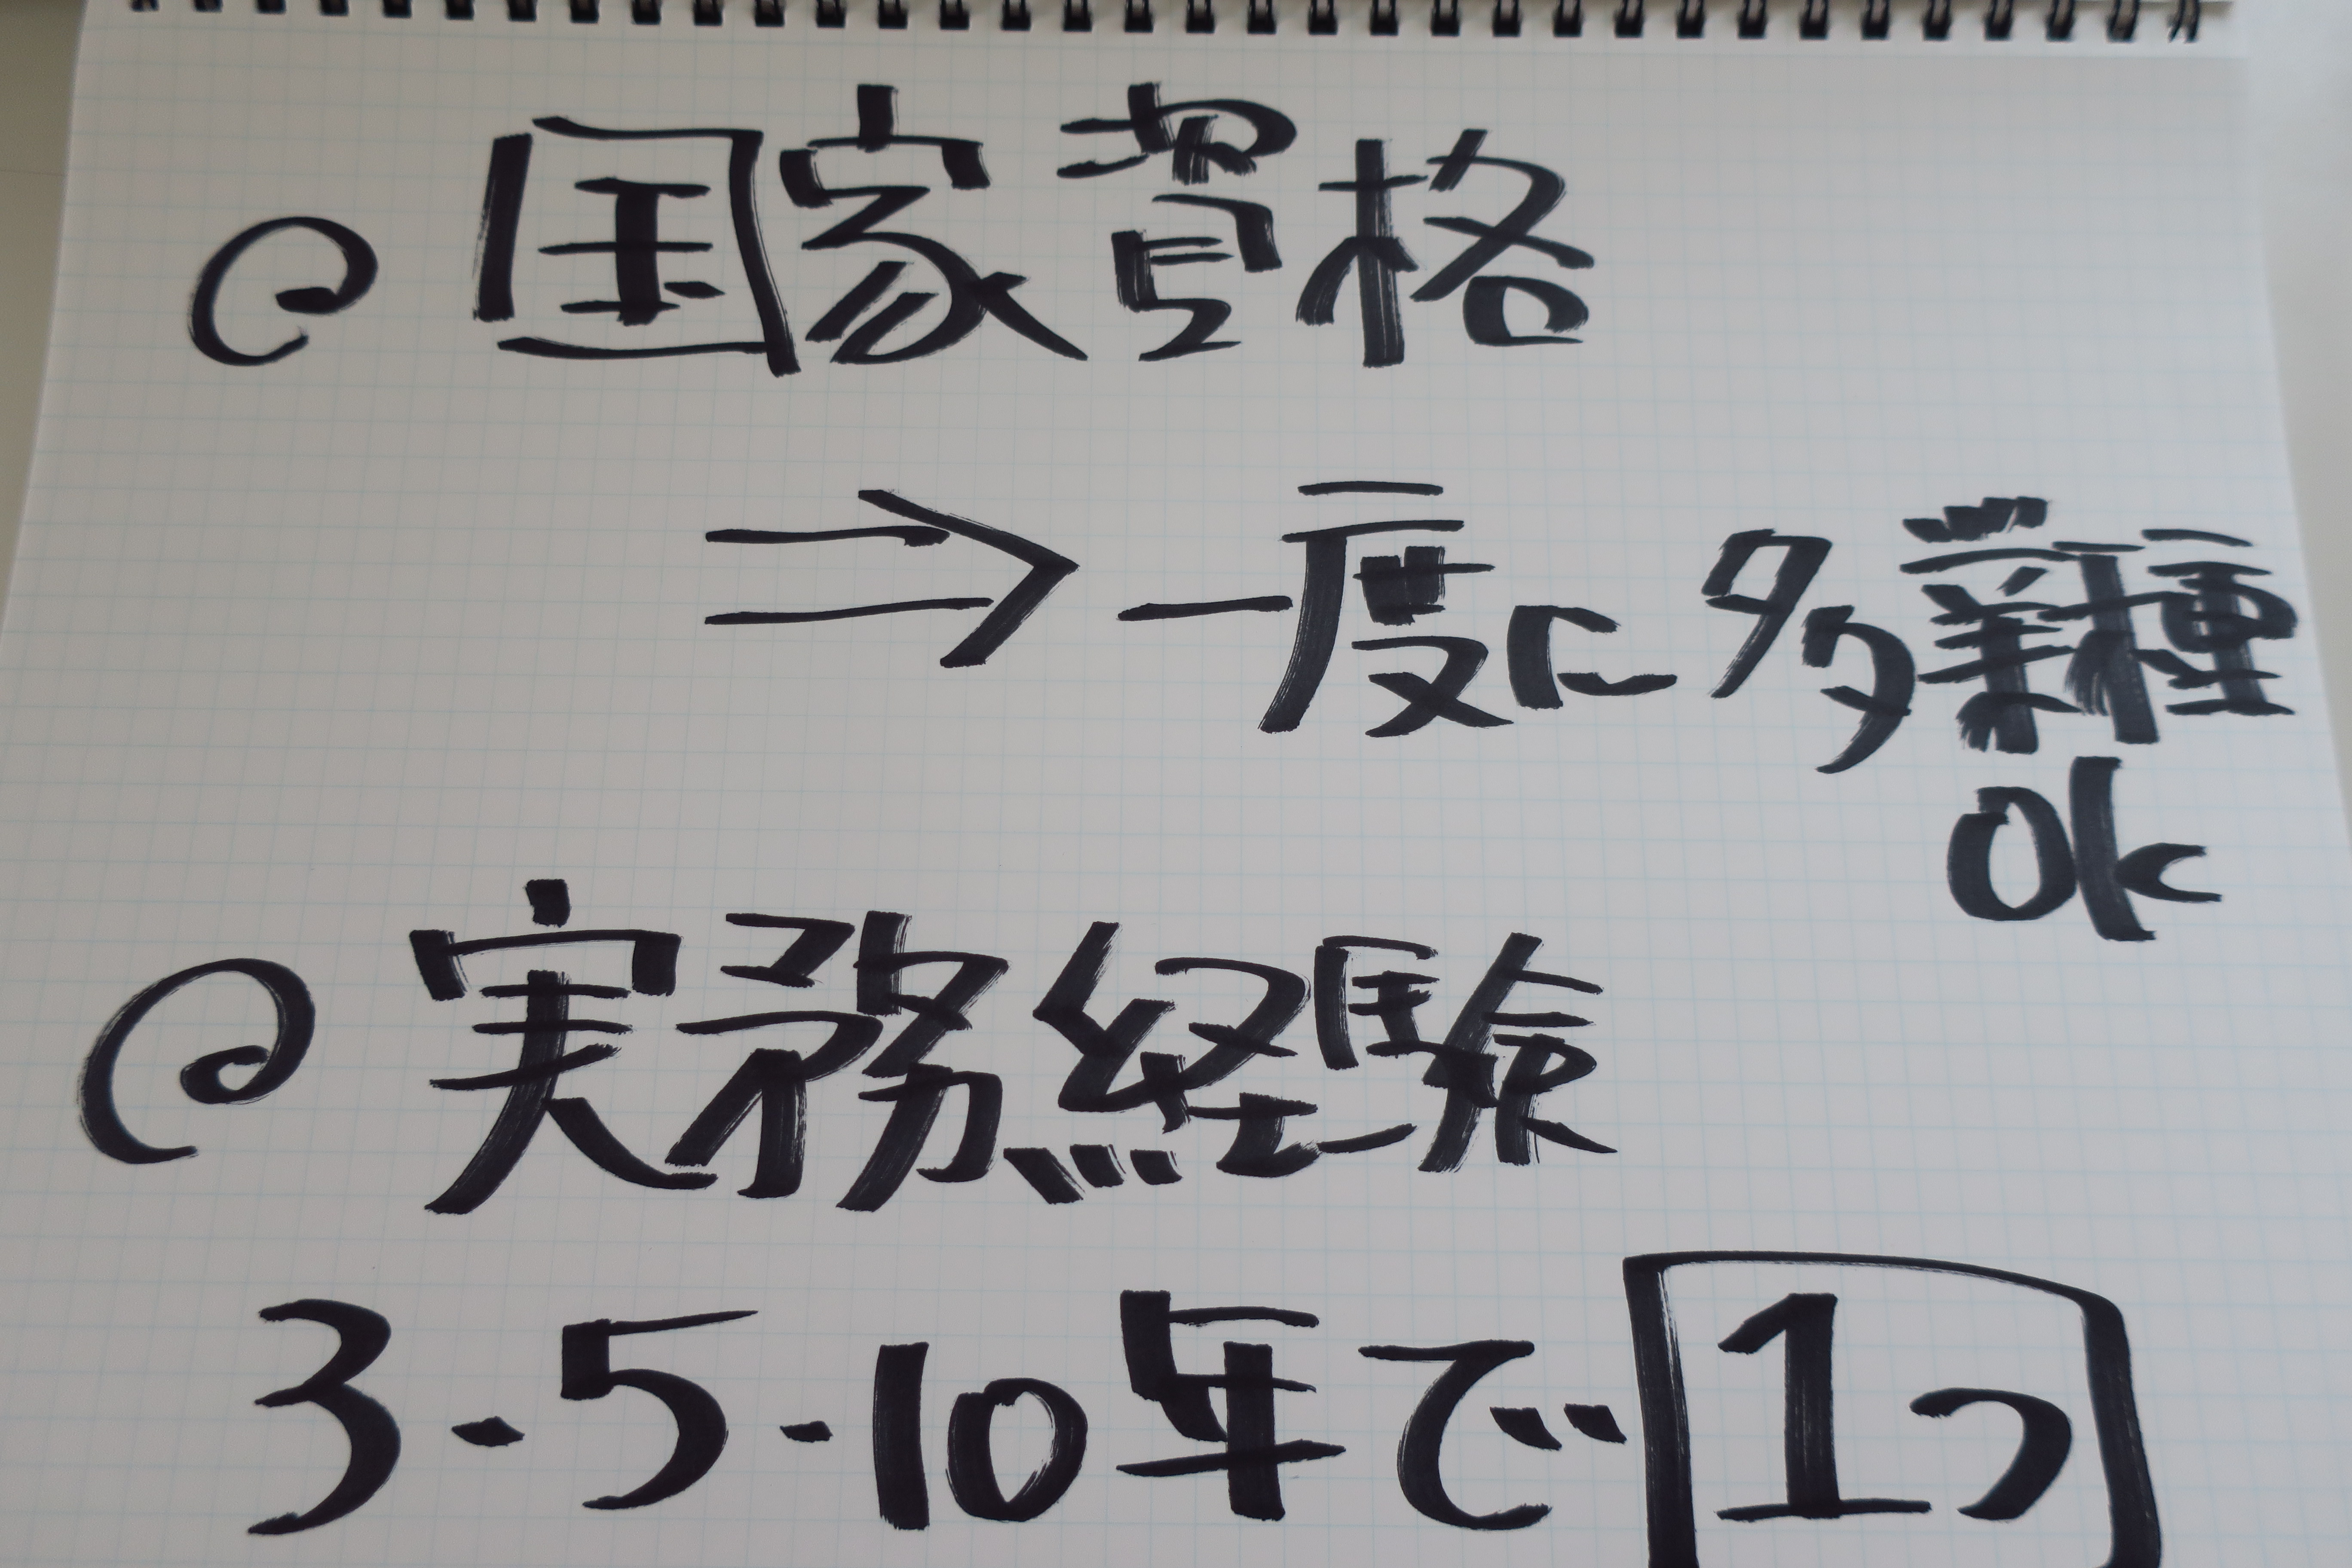 ◎ 国家資格
⇒ 一度に多業種
OK
◎ 実務経験
3・5・10年で 1つ